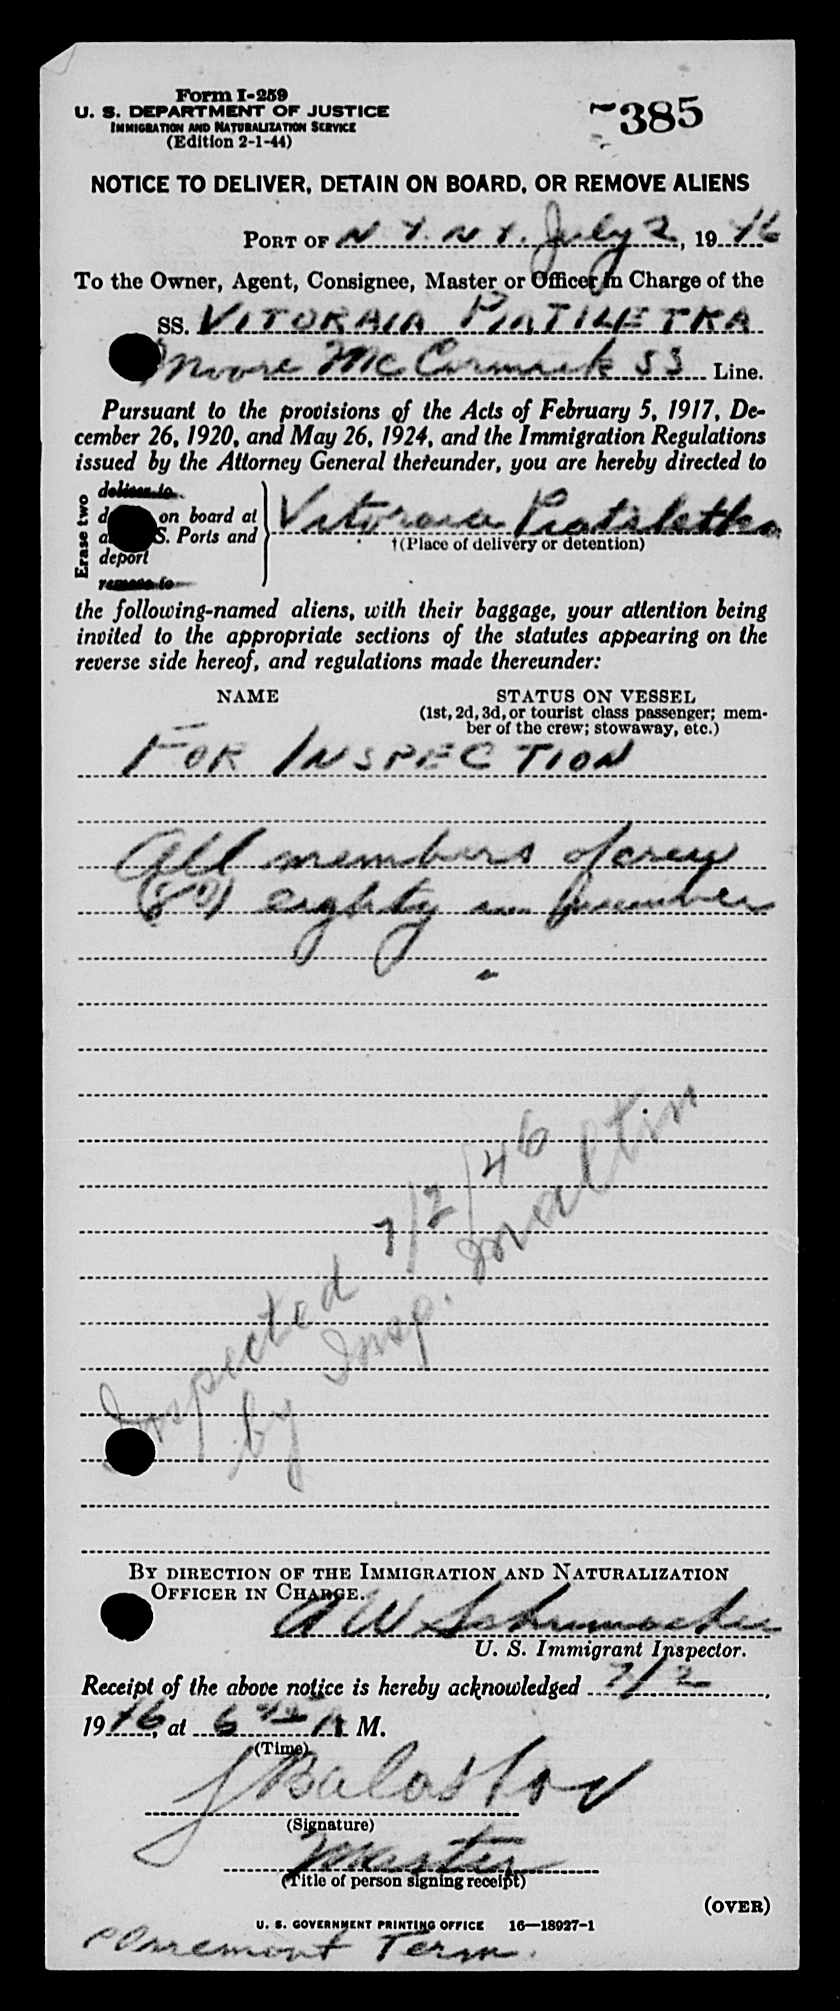 Form I-259
U. S. DEPARTMENT OF JUSTICE
IMMIGRATION AND NATURALIZATION SERVICE
(Edition 2-1-44)
385
NOTICE TO DELIVER, DETAIN ON BOARD, OR REMOVE ALIENS
PORT OF N. Y. N. Y. July 2, 1946
To the Owner, Agent, Consignee, Master or Officer in Charge of the
SS. VITORAIA PIATILETKA
Moore McCormack SS Line.
Pursuant to the provisions of the Acts of February 5, 1917, De-
cember 26, 1920, and May 26, 1924, and the Immigration Regulations
issued by the Attorney General thereunder, you are hereby directed to
Erase two
deliver to
on board at
S. Ports and
deport
remove to
Vitoraia Piatiletka
†(Place of delivery or detention)
the following-named aliens, with their baggage, your attention being
invited to the appropriate sections of the statutes appearing on the
reverse side hereof, and regulations made thereunder:
NAME STATUS ON VESSEL
(1st, 2d, 3d, or tourist class passenger; mem-
ber of the crew; stowaway, etc.)
FOR INSPECTION
All members of crew
(80) eighty in number
Inspected 7/2/46
by Insp. Maltin
BY DIRECTION OF THE IMMIGRATION AND NATURALIZATION
OFFICER IN CHARGE.
A W Schumacher
U. S. Immigrant Inspector.
Receipt of the above notice is hereby acknowledged 7/2,
1946, at 6 A M.
(Time)
(Signature)
Master
(Title of person signing receipt)
(OVER)
U. S. GOVERNMENT PRINTING OFFICE 16—18927-1
Claremont Term.